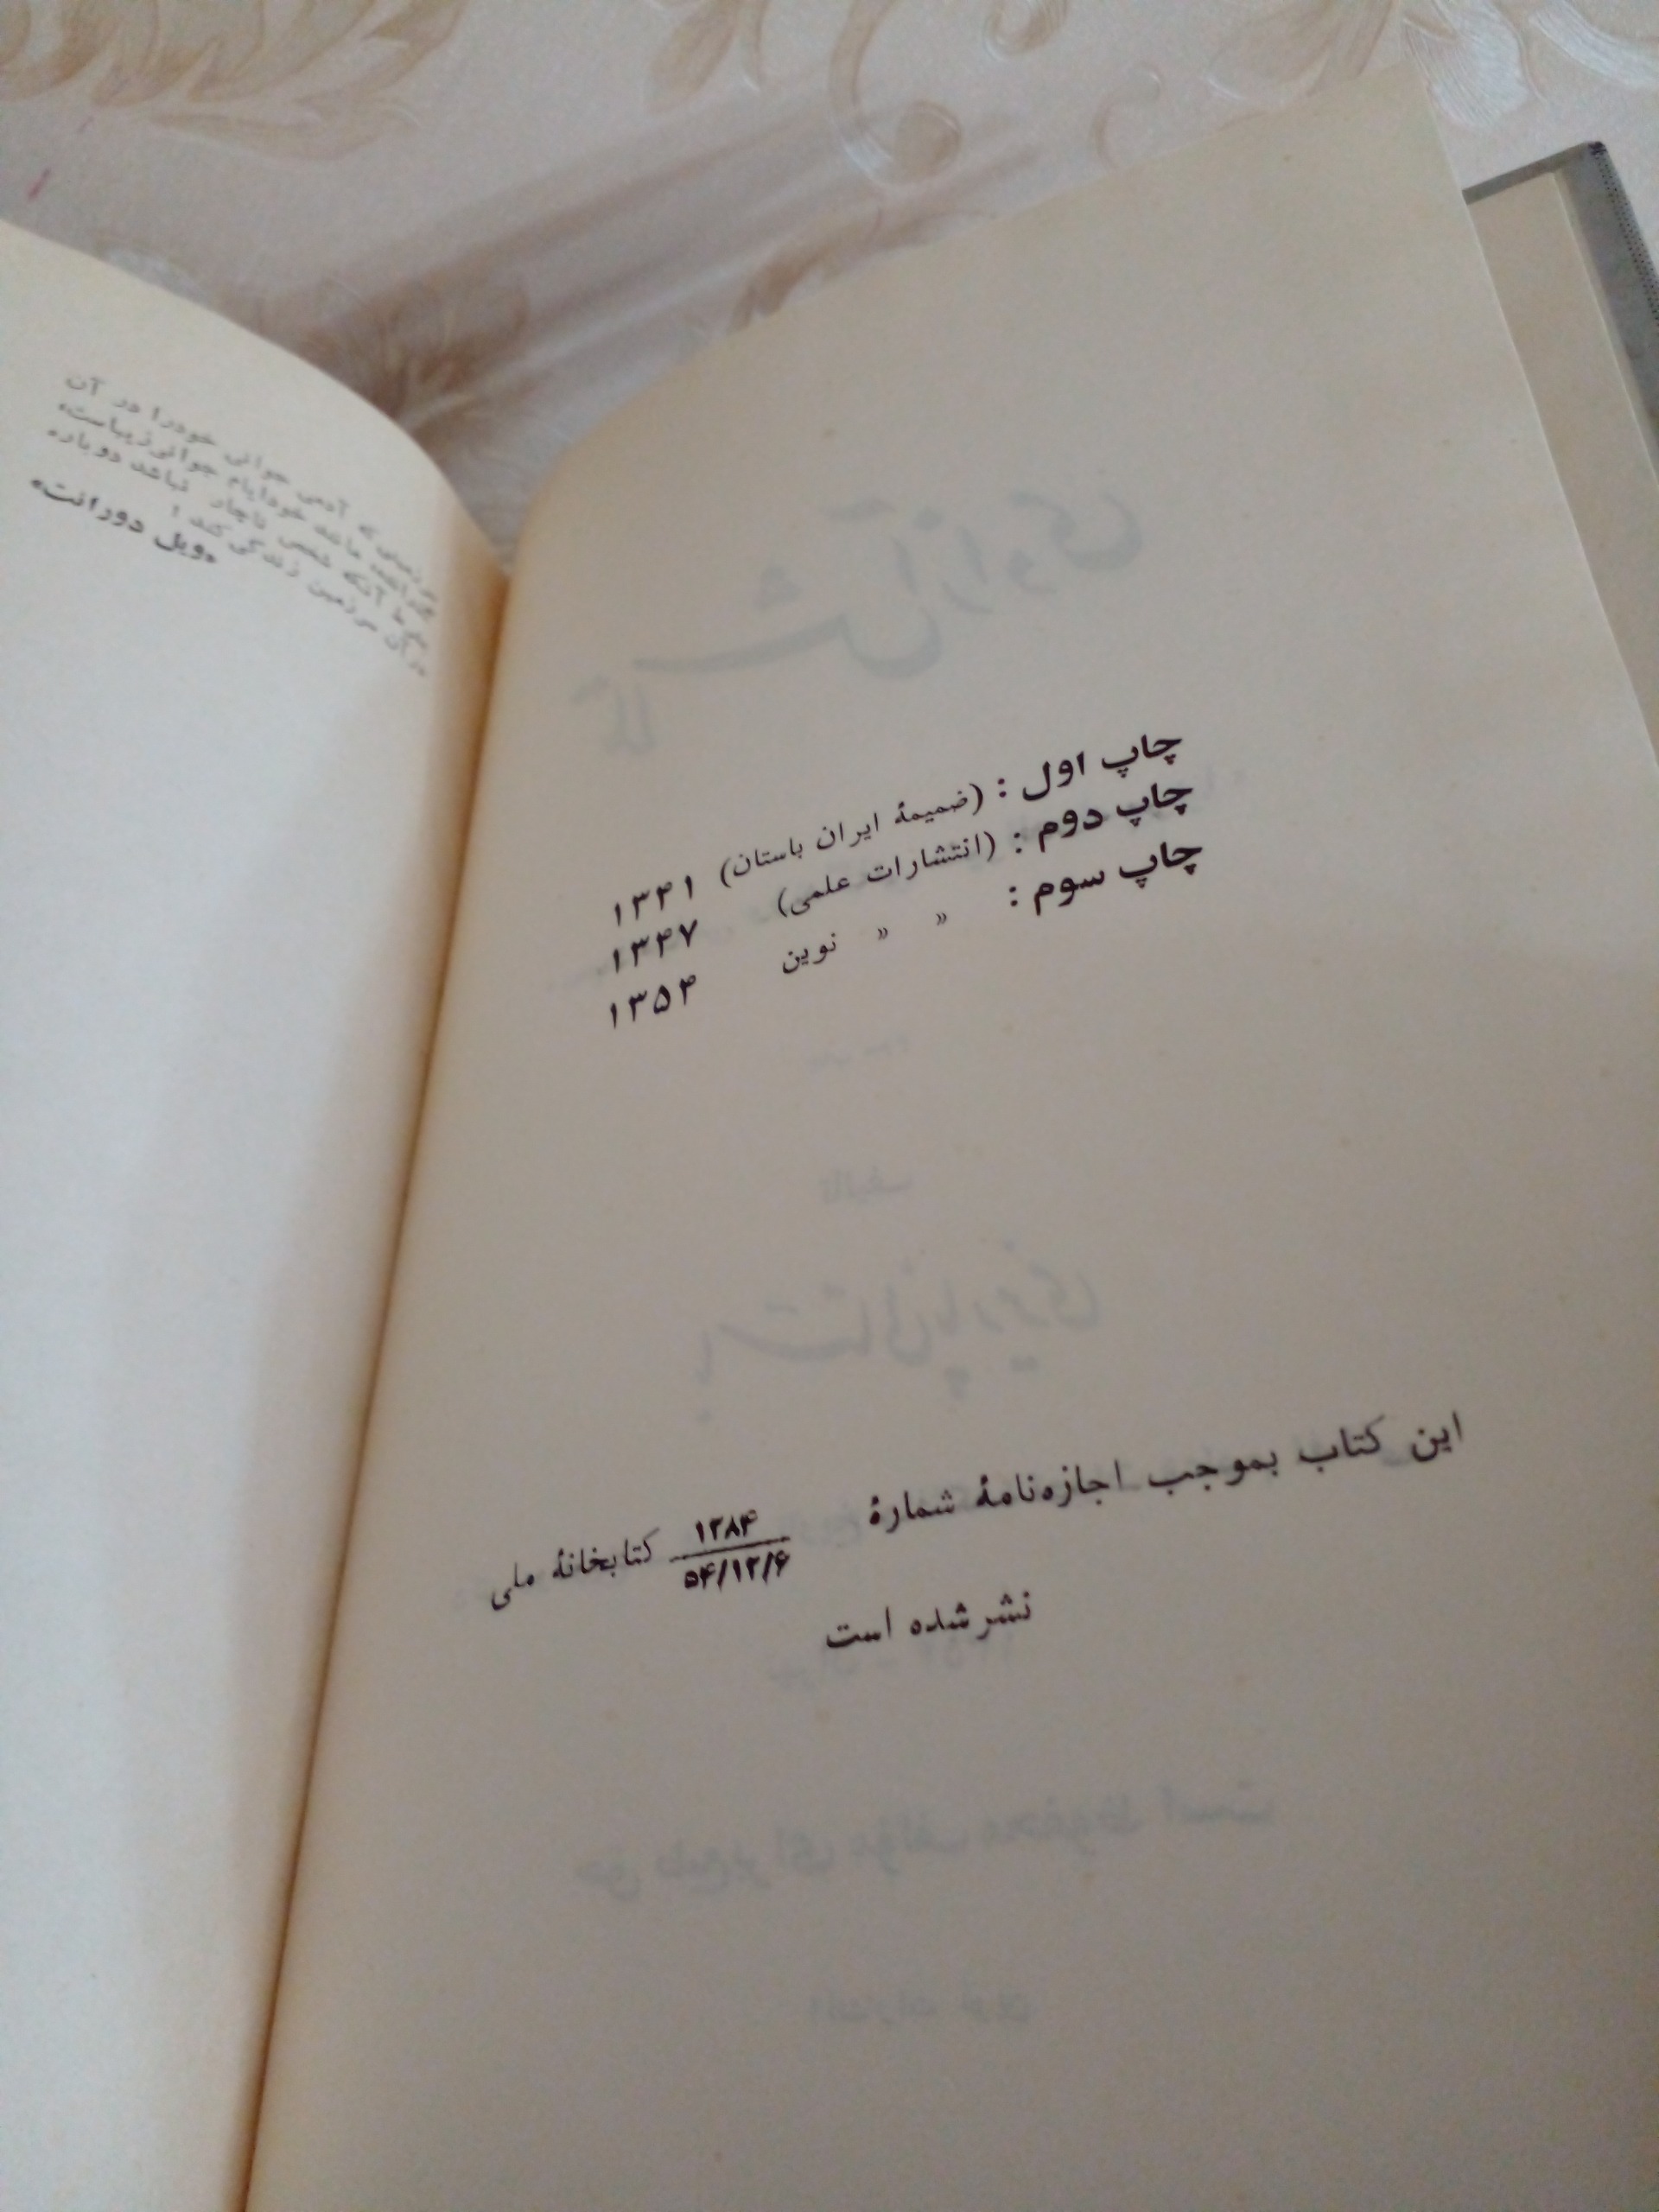 چاپ اول : (ضمیمهٔ ایران باستان) ۱۳۴۱
چاپ دوم : (انتشارات علمی) ۱۳۴۷
چاپ سوم : « « نوین ۱۳۵۴
این کتاب بموجب اجازه‌نامهٔ شمارهٔ ۱۳۸۴ کتابخانهٔ ملی
۵۴/۱۲/۶
نشر شده است
که آدمی جوانی خودرا در آن
مانند خودایام جوانی زیباست،
آنکه شخص ناچار نباشد دوباره
در آن سرزمین زندگی کند!
«ویل دورانت»